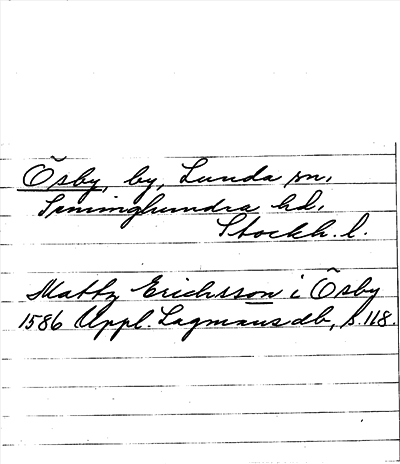 Õsby, by, Lunda sn.
Seminghundra hd.
Stockh. l.
Mattz Ericksson i Õsby
1586 Uppl. Lagmansdb, s. 118.